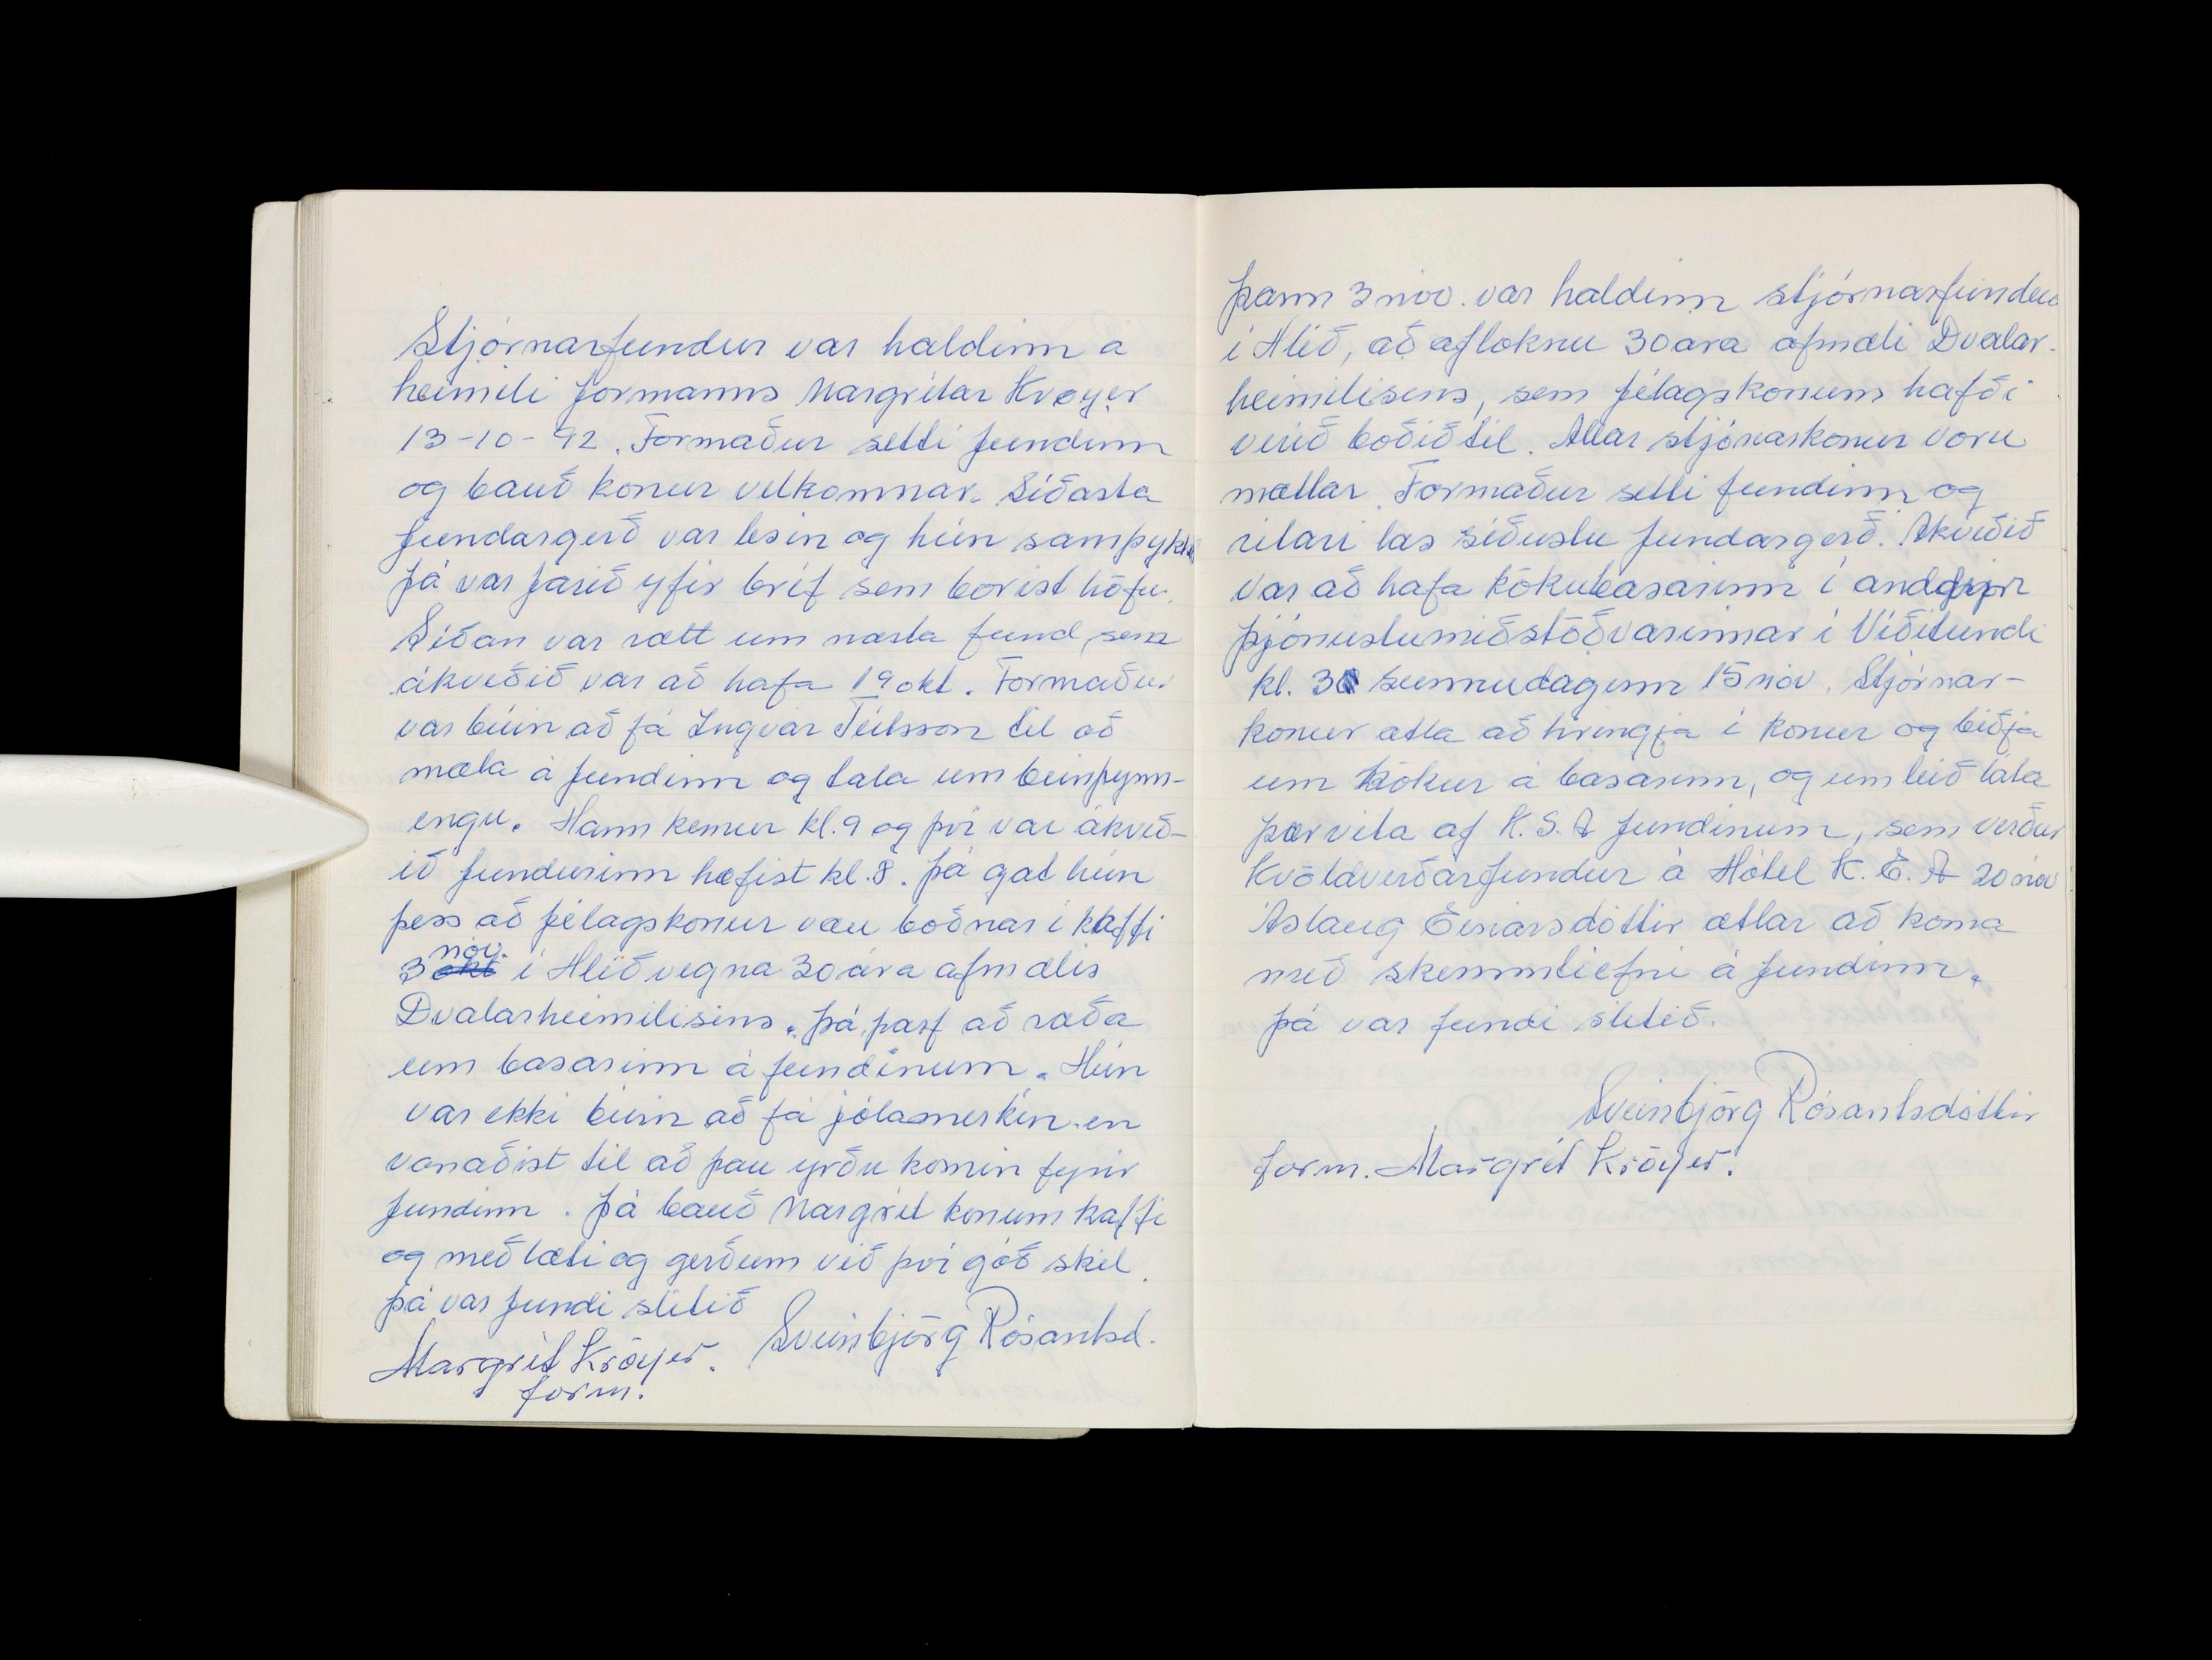 Stjórnarfundur var haldinn á
heimili formanns Margrétar Kröyer
13-10-92. Formaður setti fundinn
og bauð konur velkomnar. Síðasta
fundargerð var lesin og hún samþykkt
þá var farið yfir bréf sem borist höfu.
Síðan var rætt um næsta fund, sem
ákveðið var að hafa 19 okt. Formaður
var búin að fá Ingvar Teitsson til að
mæla á fundinn og tala um beinþynn-
engu. Hann kemur kl. 9 og því var ákveð-
ið fundurinn hæfist kl. 8. þá gat hún
þess að félagskonur væu boðnar í kaffi
3 okt nóv. í Hlíð vegna 30 ára afmælis
Dvalarheimilisins. þá þarf að ræða
um basarinn á fundinum. Hún
var ekki búin að fá jólamerkin en
vonaðist til að þau yrðu komin fyrir
fundinn. þá bauð Margrét konum kaffi
og meðlæti og gerðum við því góð skil.
þá var fundi slitið
Sveinbjörg Rósantsd.
Margrét Kröyer.
form.
þann 3 nóv. var haldinn stjórnarfundur
í Hlíð, að afloknu 30 ára afmæli Dvalar-
heimilisins, sem félagskonum hafði
verið boðið til. Allar stjónarkonur voru
mættar. Formaður setti fundinn og
ritari las síðustu fundargerð. Ákveðið
var að hafa kökubasarinn í anddyri
þjónustumiðstöðvarinnar í Víðilundi
kl. 3 sunnudaginn 15 nóv. Stjórnar-
konur ætla að hringja í konur og biðja
um kökur á basarinn, og um leið láta
þær vita af K.S.A fundinum, sem verður
Kvöldverðarfundur á Hótel K.E.A 20 nóv
Áslaug Einarsdóttir ætlar að koma
með skemmtiefni á fundinn.
þá var fundi slitið.
Sveinbjörg Rósantsdóttir
form. Margrét Kröyer.